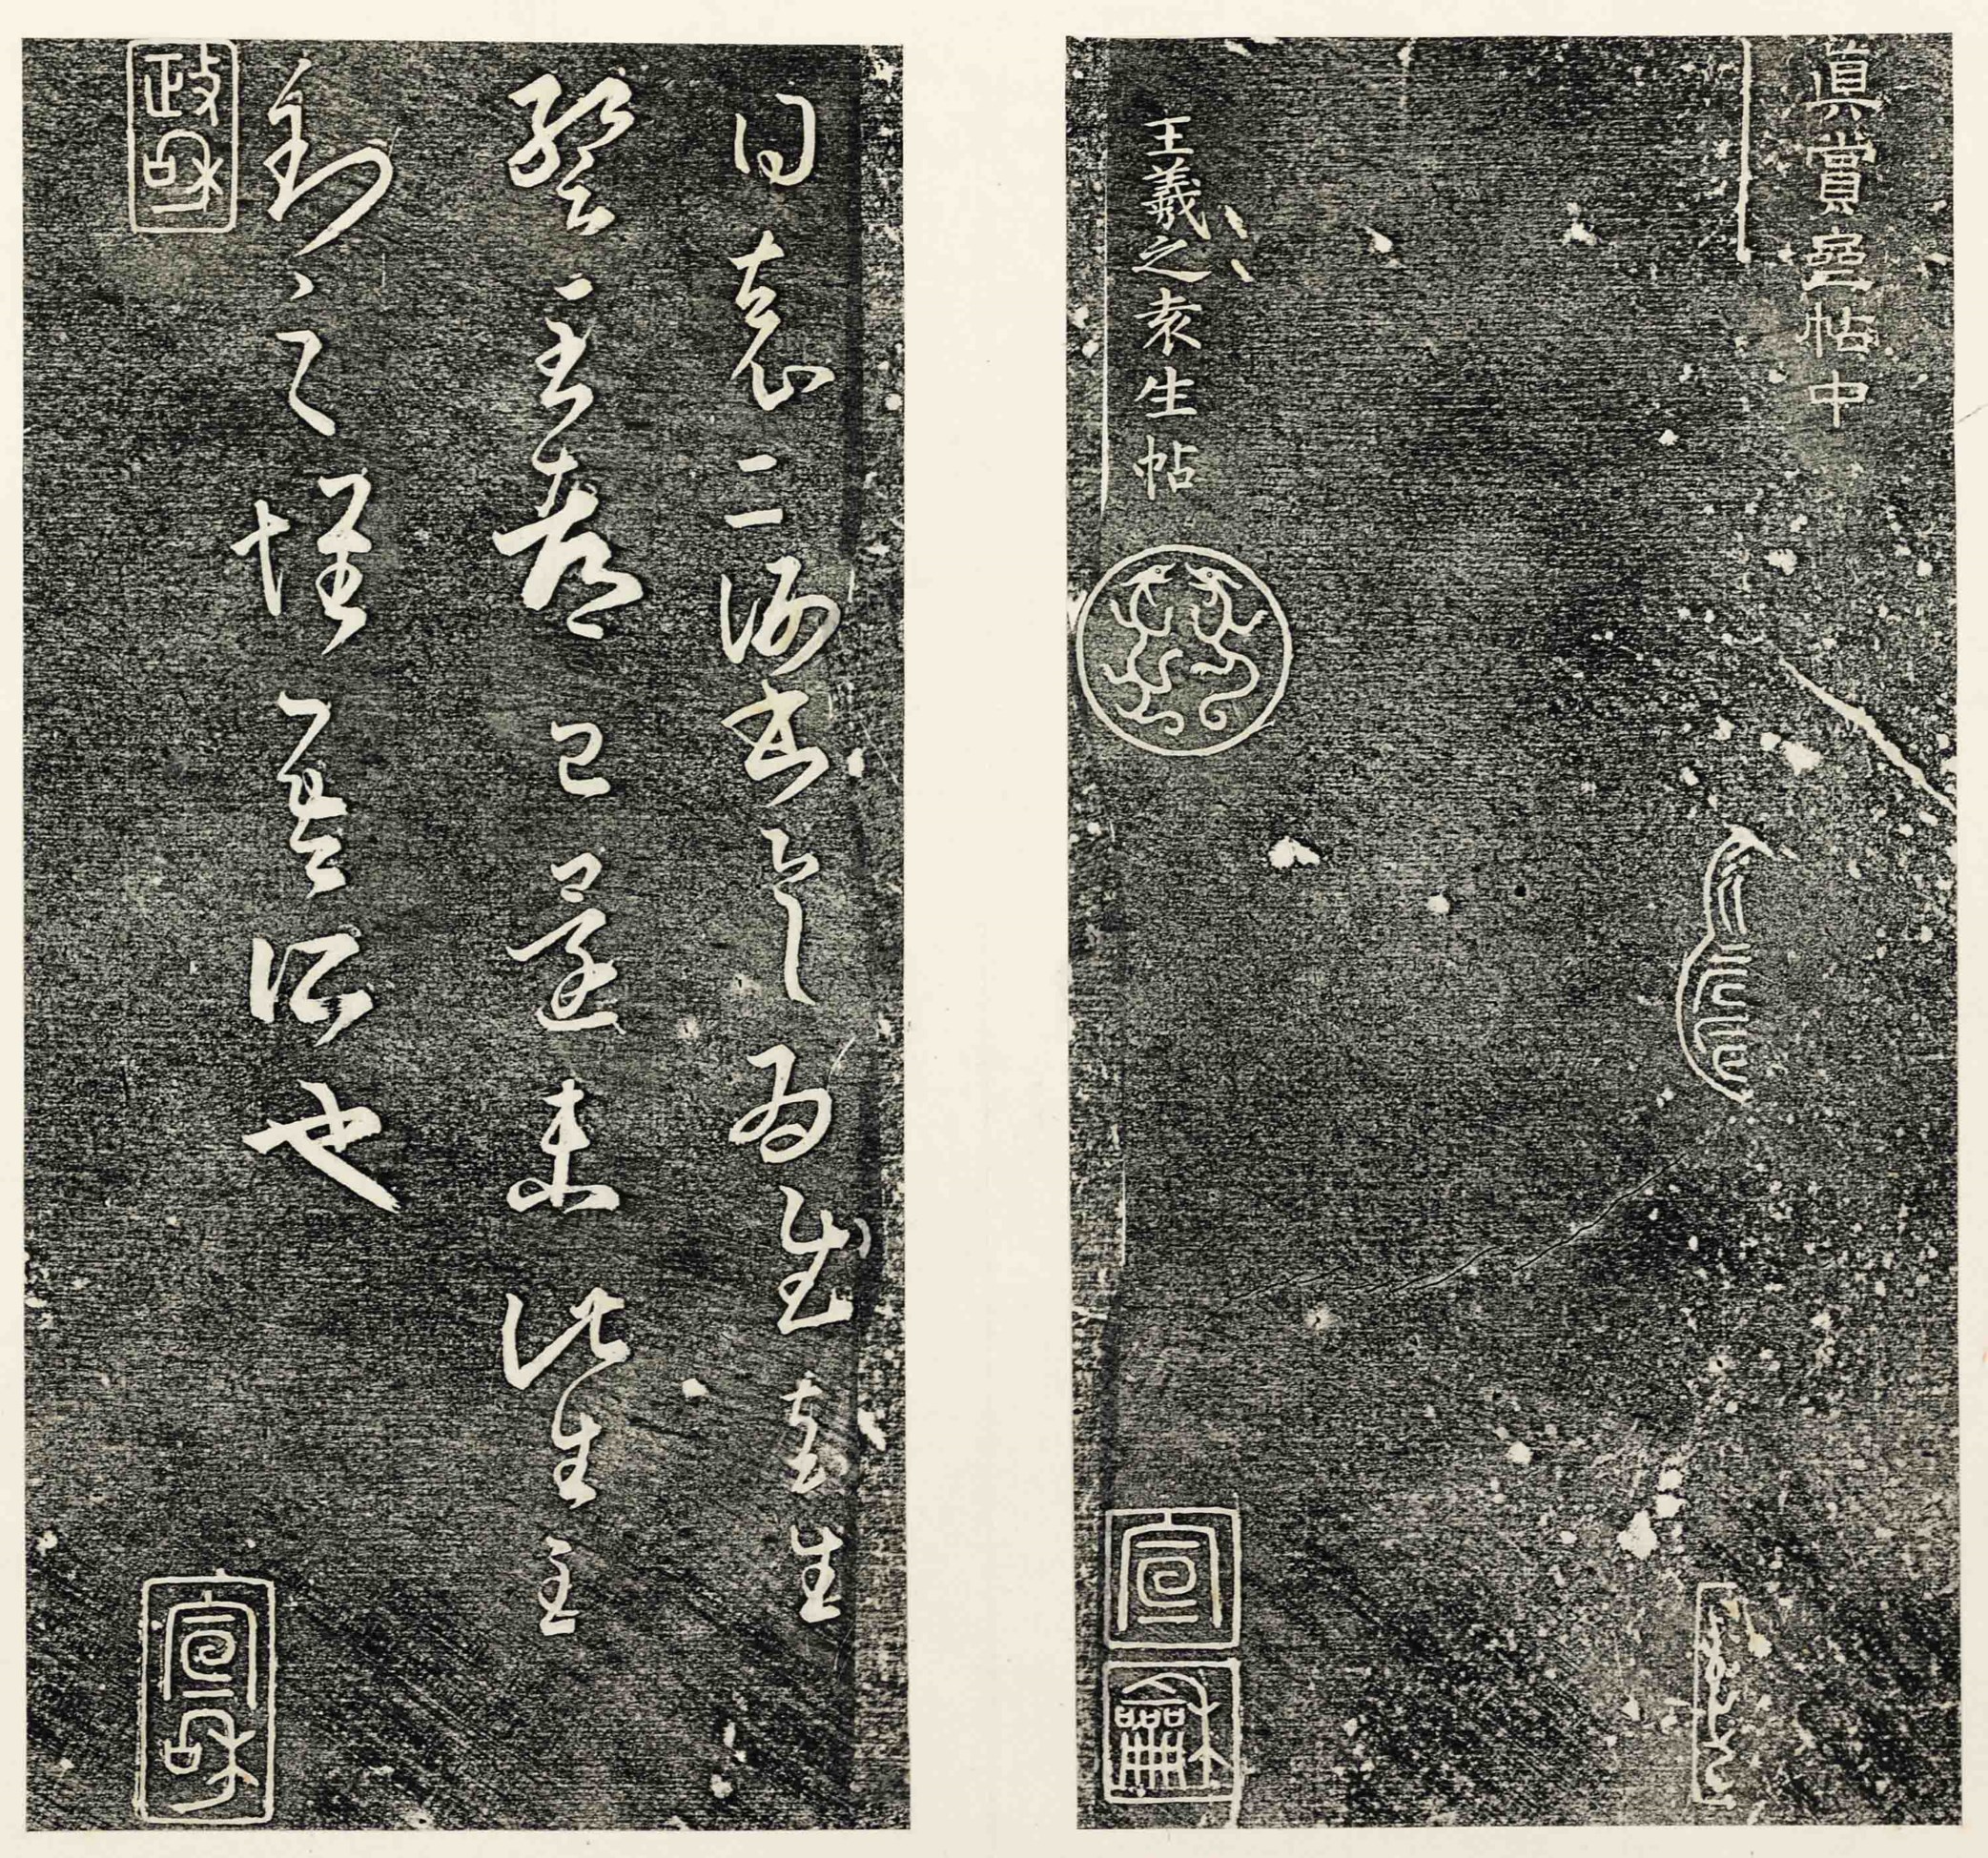 眞賞齋帖中
王羲之袁生帖
宣
龢
得袁二謝書具為慰袁生
暫至都已還未此生至
到之懷吾所也
政和
宣和